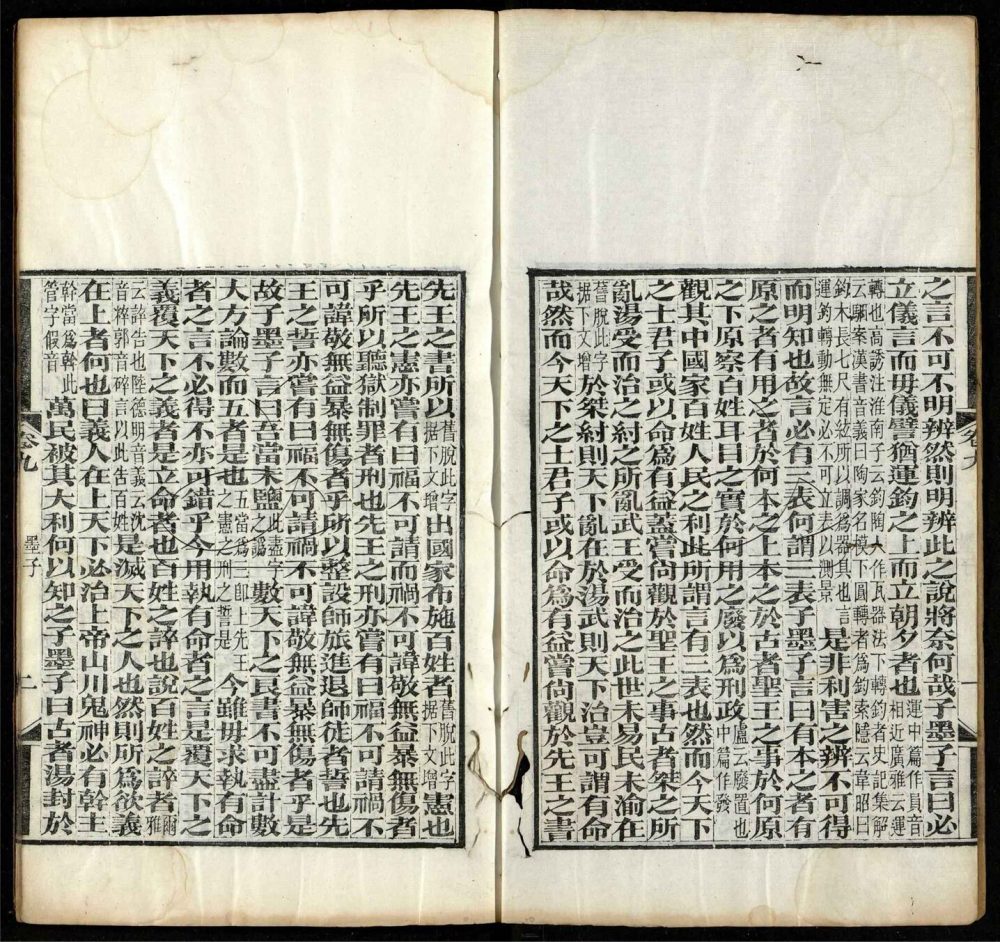 之言不可不明辨然則明辨此之說將奈何哉子墨子言曰必
立儀言而毋儀譬猶運鈞之上而立朝夕者也運中篇作員音相近廣雅云運
轉也高誘注淮南子云鈞陶人作瓦器法下轉鈞者史記集解
云駰案漢書音義曰陶家名模下圓轉者爲鈞索隱云韋昭曰
鈞木長七尺有絃所以調爲器具也言運鈞轉動無定必不可立表以測景是非利害之辨不可得
而明知也故言必有三表何謂三表子墨子言曰有本之者有
原之者有用之者於何本之上本之於古者聖王之事於何原
之下原察百姓耳目之實於何用之廢以爲刑政盧云廢置也中篇作發
觀其中國家百姓人民之利此所謂言有三表也然而今天下
之士君子或以命爲有益蓋嘗尙觀於聖王之事古者桀之所
亂湯受而治之紂之所亂武王受而治之此世未易民未渝在
舊脫此字据下文增於桀紂則天下亂在於湯武則天下治豈可謂有命
哉然而今天下之士君子或以命爲有益嘗尙觀於先王之書
卷九
先王之書所以舊脫此字据下文增出國家布施百姓者舊脫此字据下文增憲也
先王之憲亦嘗有曰福不可請而禍不可諱敬無益暴無傷者
乎所以聽獄制罪者刑也先王之刑亦嘗有曰福不可請禍不
可諱敬無益暴無傷者乎所以整設師旅進退師徒者誓也先
王之誓亦嘗有曰福不可請禍不可諱敬無益暴無傷者乎是
故子墨子言曰吾當未鹽此盡字之譌數天下之良書不可盡計數
大方論數而五者是也五當爲三卽上先王之憲之刑之誓是今雖毋求執有命
者之言不必得不亦可錯乎今用執有命者之言是覆天下之
義覆天下之義者是立命者也百姓之誶也說百姓之誶者爾雅
云誶告也陸德明音義云沈音粹郭音碎言以此告百姓是滅天下之人也然則所爲欲義
在上者何也曰義人在上天下必治上帝山川鬼神必有幹主
幹當爲榦此管字假音萬民被其大利何以知之子墨子曰古者湯封於
卷九
墨子
二